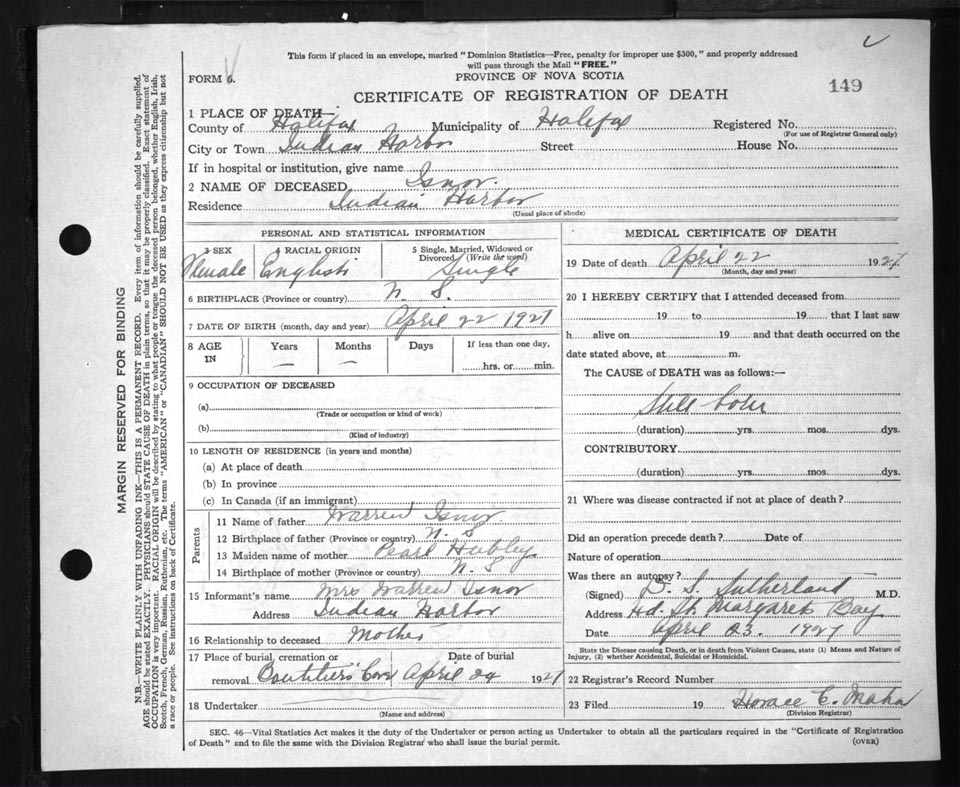 This form if placed in an envelope, marked "Dominion Statistics—Free, penalty for improper use $300," and properly addressed
will pass through the Mail "FREE."
FORM 6.
PROVINCE OF NOVA SCOTIA
149
CERTIFICATE OF REGISTRATION OF DEATH
1 PLACE OF DEATH—
County of Halifax Municipality of Halifax Registered No.
(For use of Registrar General only)
City or Town Indian Harbor Street House No.
If in hospital or institution, give name
2 NAME OF DECEASED Isnor.
Residence Indian Harbor
(Usual place of abode)
PERSONAL AND STATISTICAL INFORMATION
3 SEX 4 RACIAL ORIGIN 5 Single, Married, Widowed or
Divorced (Write the word)
English Single
6 BIRTHPLACE (Province or country) N. S.
7 DATE OF BIRTH (month, day and year) April 22 1927
8 AGE IN Years Months Days If less than one day,
— — hrs. or min.
9 OCCUPATION OF DECEASED
(a)
(Trade or occupation or kind of work)
(b)
(Kind of industry)
10 LENGTH OF RESIDENCE (in years and months)
(a) At place of death
(b) In province
(c) In Canada (if an immigrant)
Parents
11 Name of father Warren Isnor.
12 Birthplace of father (Province or country) N. S
13 Maiden name of mother Pearl Hubley
14 Birthplace of mother (Province or country) N. S
15 Informant's name Mrs Warren Isnor
Address Indian Harbor
16 Relationship to deceased Mother
17 Place of burial, cremation or Date of burial
removal Boutiliers Cove April 24 1927
18 Undertaker
(Name and address)
MEDICAL CERTIFICATE OF DEATH
19 Date of death April 22 1927
(Month, day and year)
20 I HEREBY CERTIFY that I attended deceased from
19 to 19 that I last saw
h alive on 19 and that death occurred on the
date stated above, at m.
The CAUSE of DEATH was as follows:—
Still born
(duration) yrs. mos. dys.
CONTRIBUTORY
(duration) yrs. mos. dys.
21 Where was disease contracted if not at place of death?
Did an operation precede death? Date of
Nature of operation
Was there an autopsy?
(Signed) D. S. Sutherland M.D.
Address Hd. St. Margarets Bay
Date April 23. 1927
State the Disease causing Death, or in death from Violent Causes, state (1) Means and Nature of
Injury, (2) whether Accidental, Suicidal or Homicidal.
22 Registrar's Record Number
23 Filed 19 Horace C.
(Division Registrar)
SEC. 46—Vital Statistics Act makes it the duty of the Undertaker or person acting as Undertaker to obtain all the particulars required in the "Certificate of Registration
of Death" and to file the same with the Division Registrar who shall issue the burial permit.
(OVER)
MARGIN RESERVED FOR BINDING
N.B.—WRITE PLAINLY WITH UNFADING INK—THIS IS A PERMANENT RECORD. Every item of information should be carefully supplied.
AGE should be stated EXACTLY. PHYSICIANS should STATE CAUSE OF DEATH in plain terms, so that it may be properly classified. Exact statement of
OCCUPATION is very important. RACIAL ORIGIN will be described by stating to what people or tongue the deceased person belonged, whether English, Irish,
Scotch, French, German, Russian, Ruthenian, etc. The terms "AMERICAN" or "CANADIAN" SHOULD NOT BE USED as they express citizenship but not
a race or people. See instructions on back of Certificate.